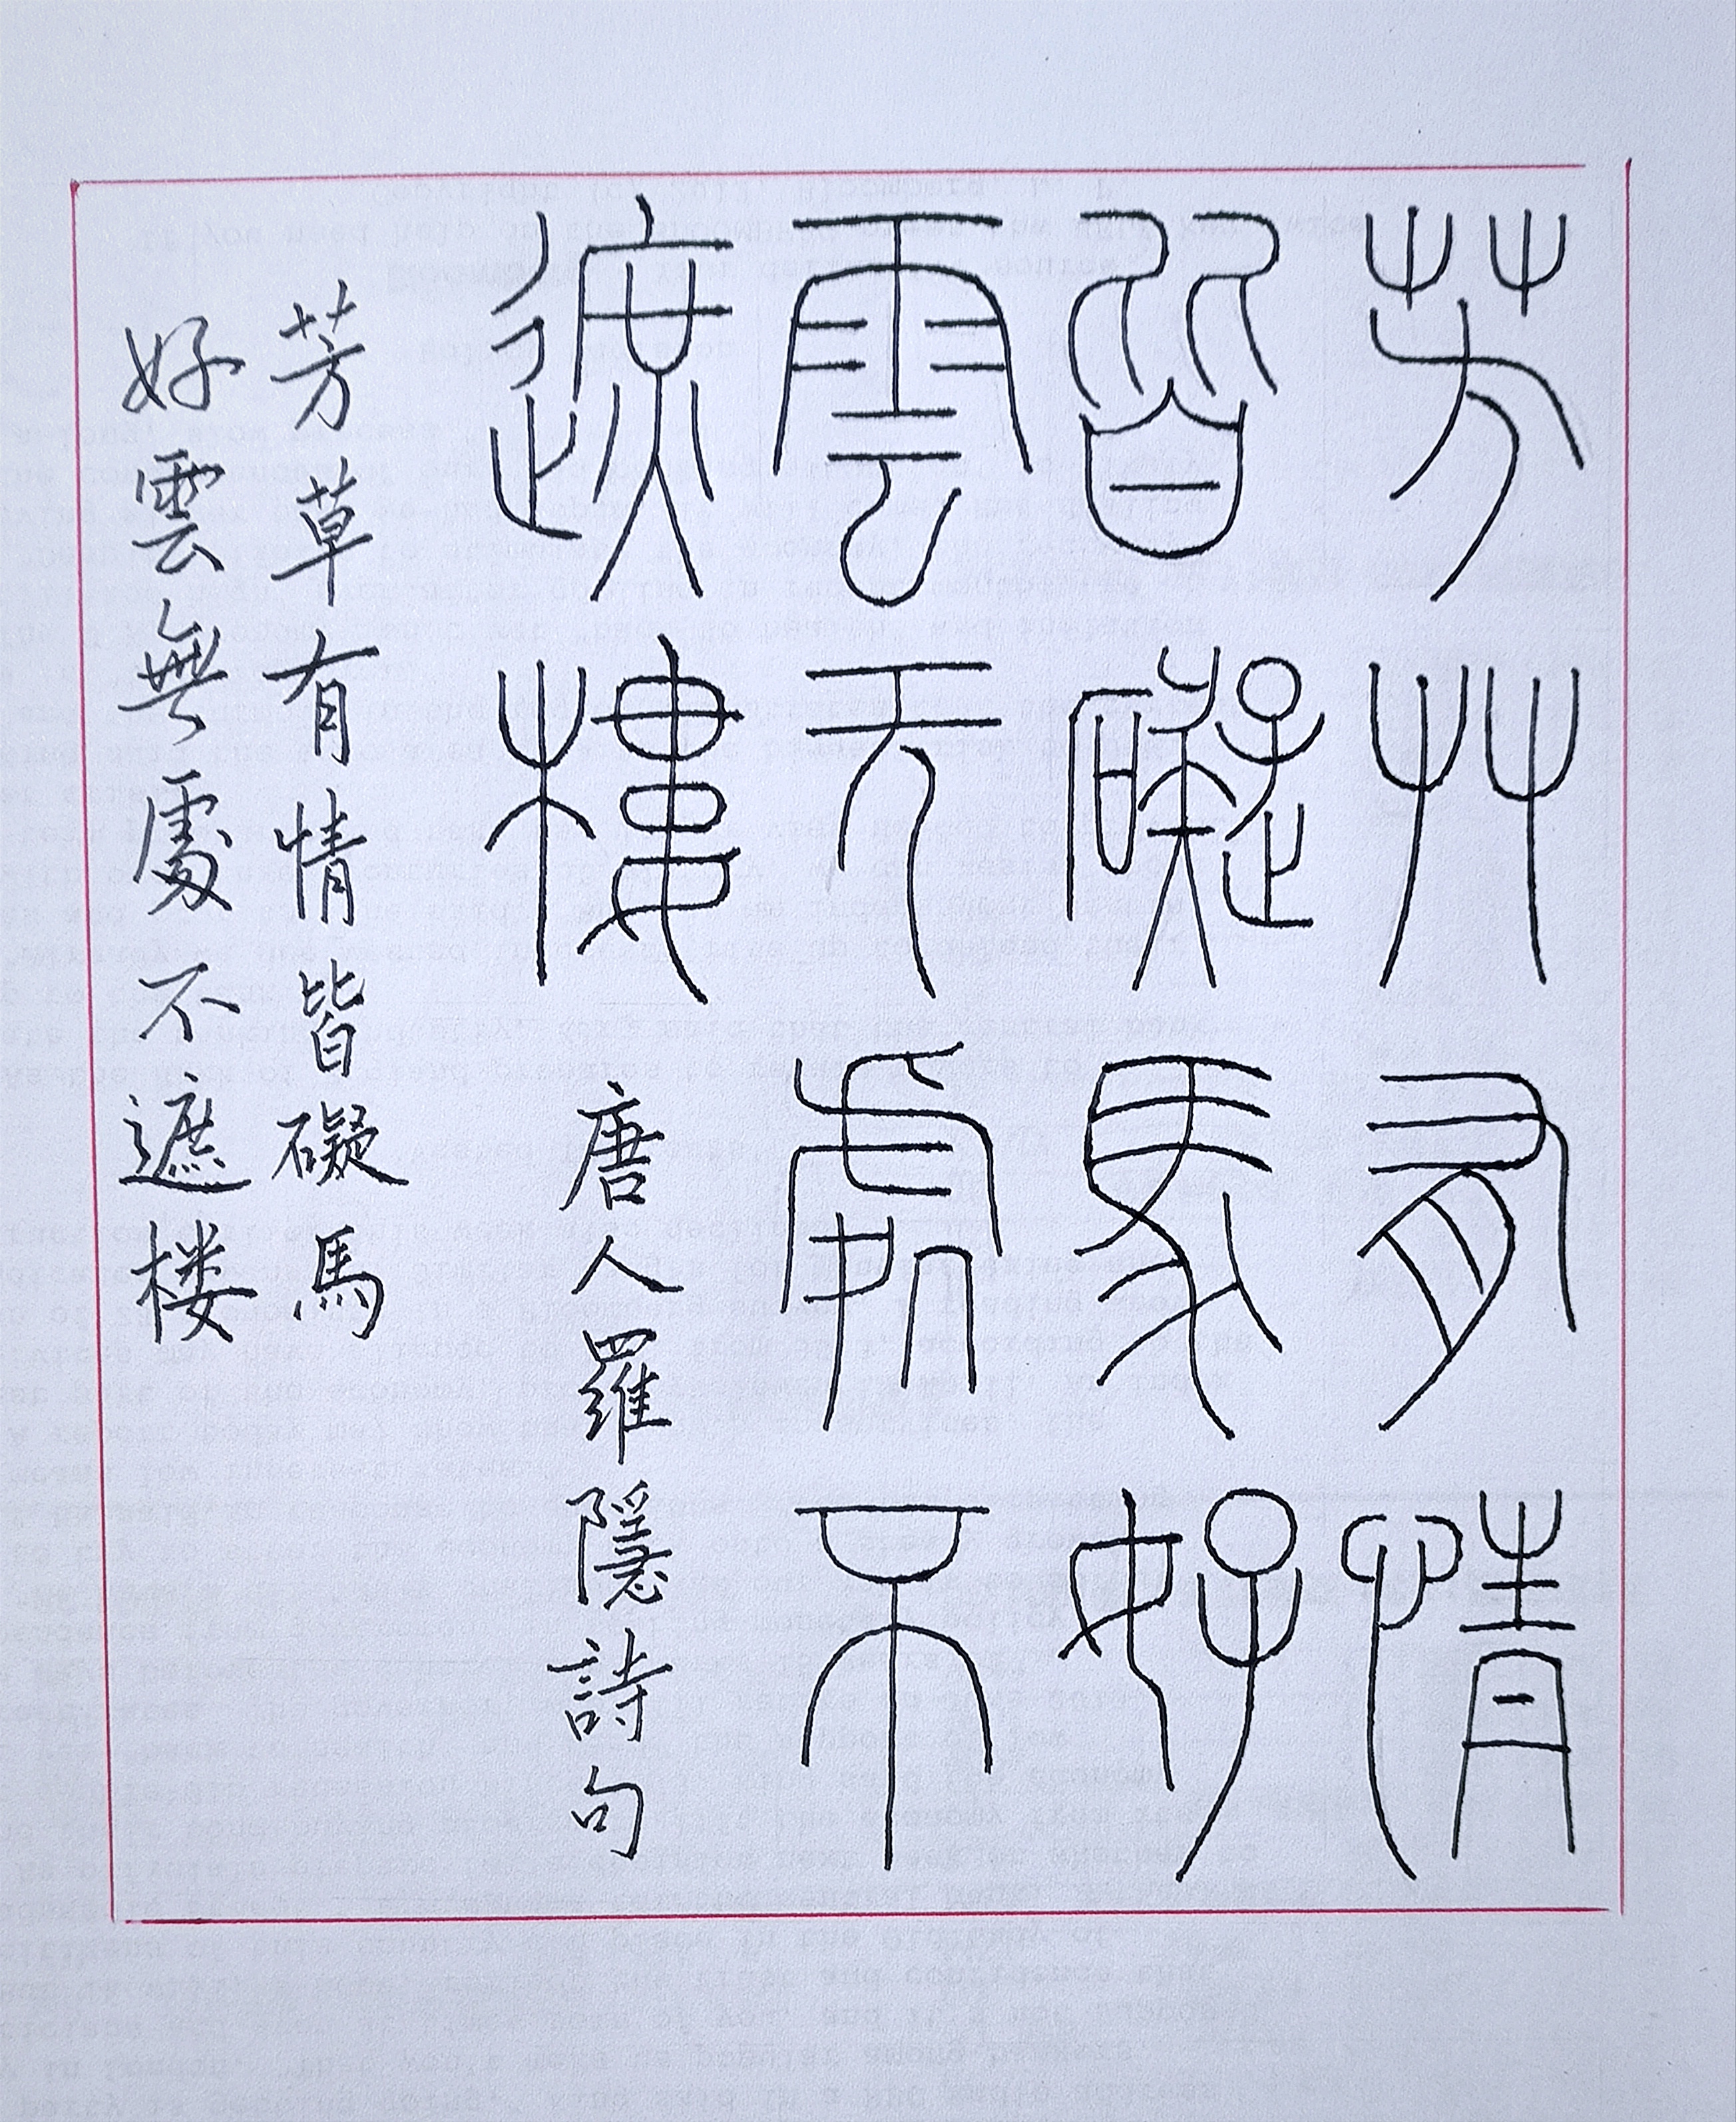 芳艸有情
皆礙馬好
雲无處不
遮樓
唐人羅隱詩句
芳草有情皆礙馬
好雲無處不遮楼